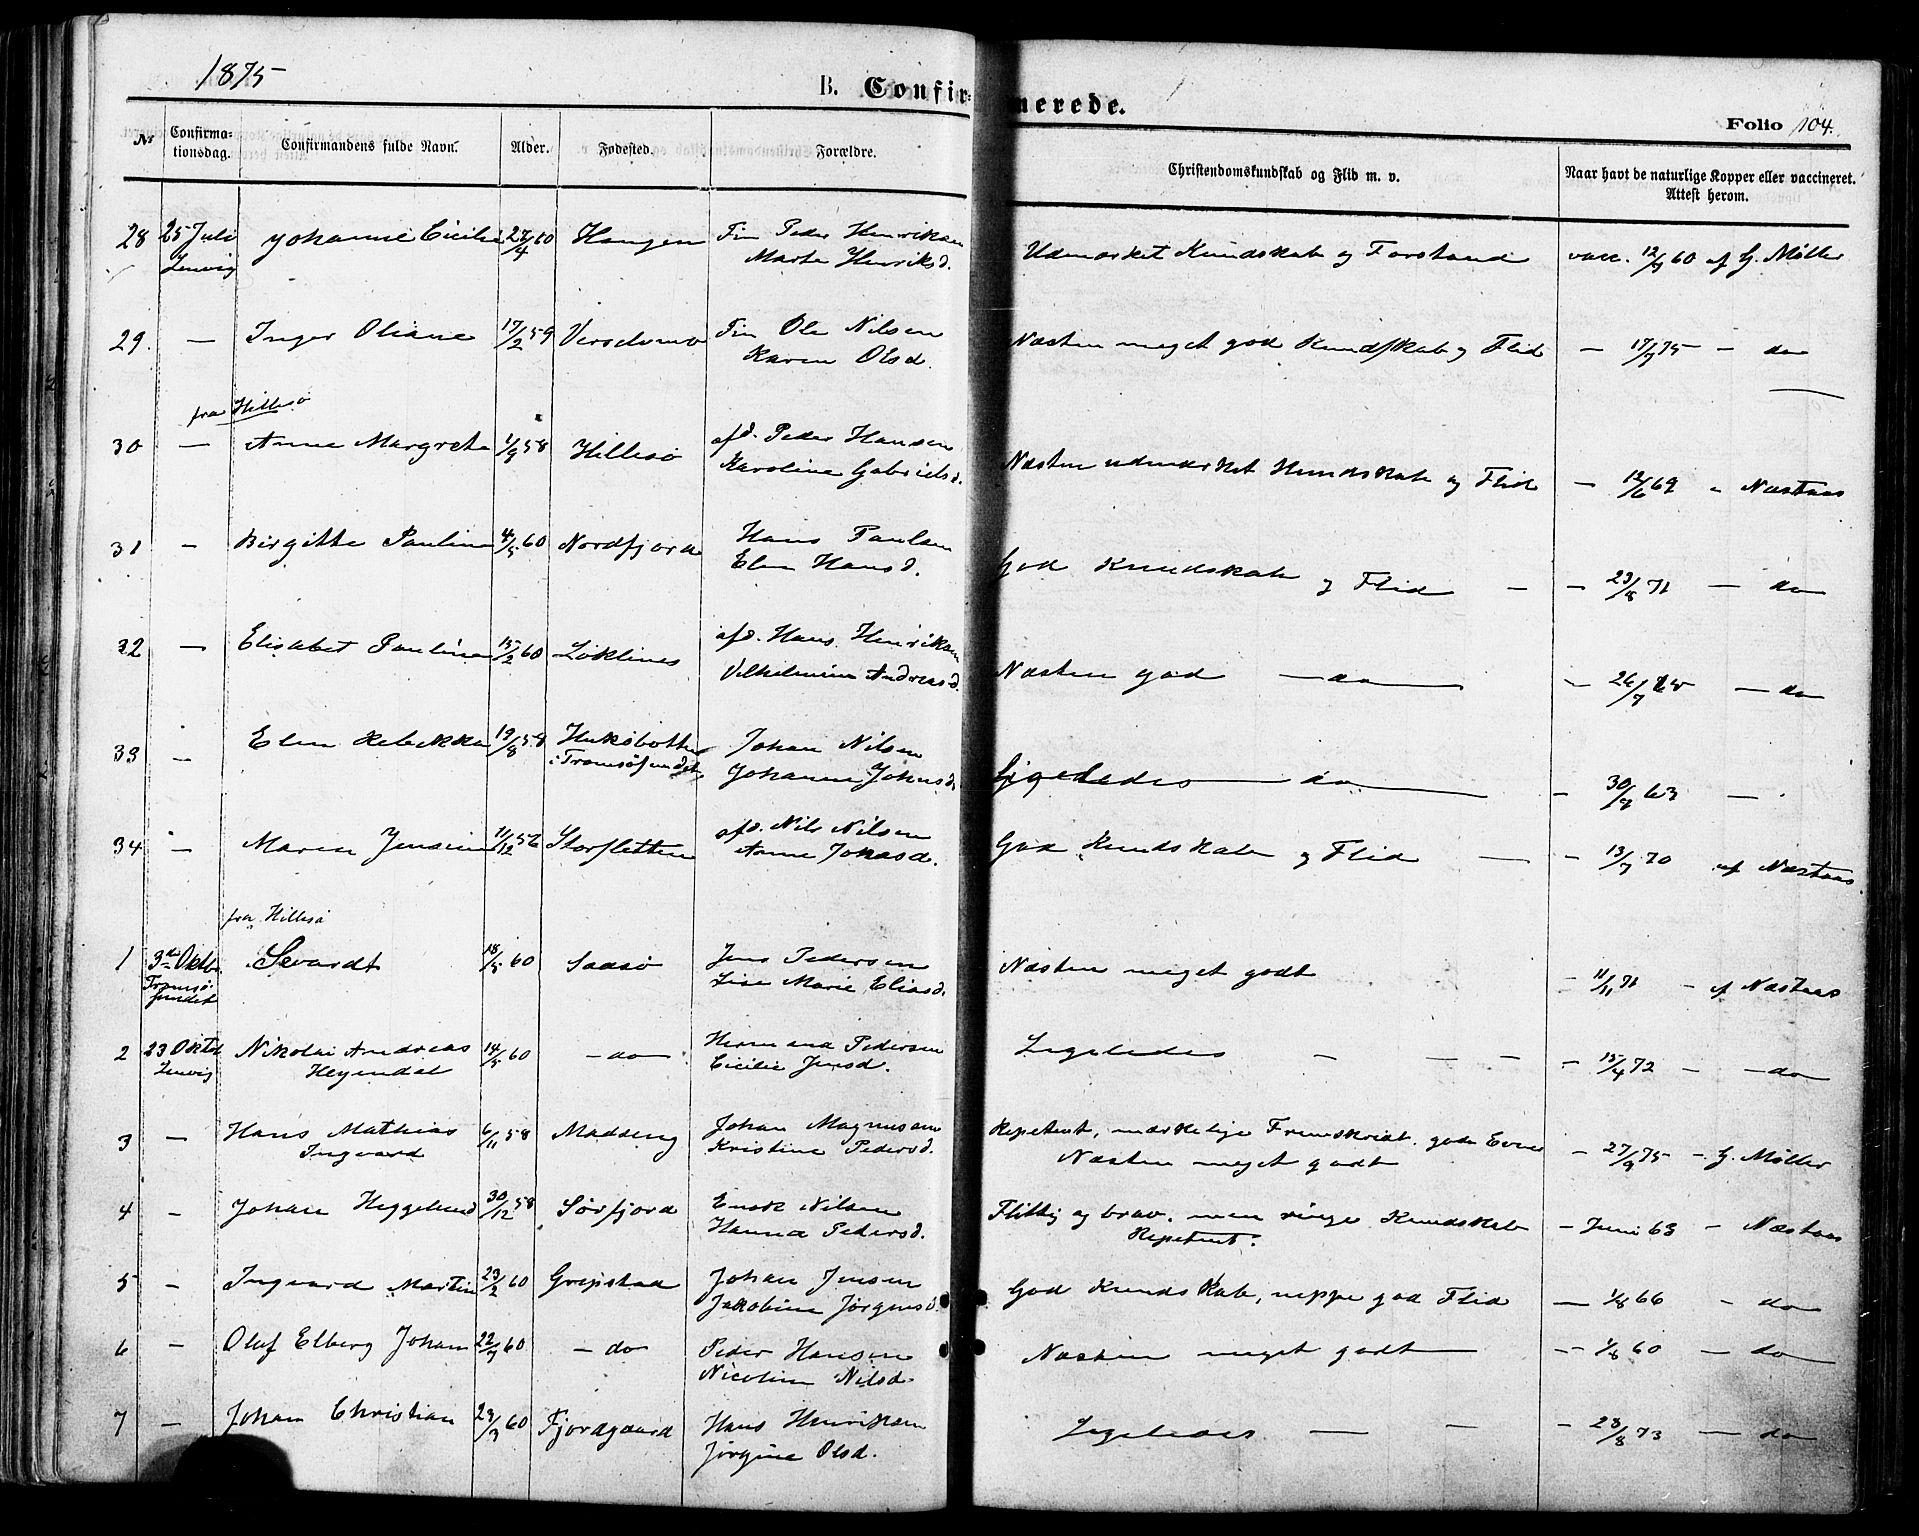 1875
B. Confirmerede.
Folio 104.
No Confirmationsdag. Confirmandens fulde Navn. Alder. Fødested. Forældre. Christendomskundskab og Flid m. v. Naar havt de naturlige Kopper eller vaccineret. Attest herom.
28 25 Juli Johanne Cicilie 27/4 60 Haugen Fm Peder Henriksen Udmærket Kundskab og Forstand vacc. 12/9 60 af G. Møller
Lenvig Marta Henriksd.
29. — Inger Oliane 17/2 59 Fm Ole Nilsen Næsten meget god Kundskab og Flid — 17/7 75 — do
Karen Olsd.
fra Hillesø
30 — Anne Margrete 1/9 58 Hillesø afd. Peder Hansen Næsten udmærket Kundskab og Flid — 12/6 69 " Næstaas
Karoline Gabrielsd.
31 — Birgitte Pauline 4/5 60 Nordfjord Hans Paulsen God Kundskab og Flid — — 23/8 71 — do
Elen Hansd.
32 — Elisabet Pauline 15/2 60 Løklines afd. Hans Henriksen Næsten god — do — — 26/7 — do
Vilhelmine Andreasd.
33 — Elen Rebekka 19/8 58 Johan Nilsen Ligeledes — do — — 30/7 63 —
i Tromsøsundet Johanna Johnsd.
34 — Maren Jensine 11/12 56 Storsletten afd. Nils Nilsen God Kundskab og Flid — — 13/7 70 af Næstaas.
Anne Jonasd.
fra Hillesø
1 3die Oktbr. Sevardt 18/5 60 Sadsø Jens Pedersen Næsten meget godt — 11/11 71 — af Næstaas
Tromsøsundet Lise Marie Eliasd.
2 23 Oktob Nikolai Andreas 14/5 60 — do — Hermana Pedersen Ligeledes — — — — 15/4 72 — — do
Lenvig Heyendal Cicilie Jensd.
3 — Hans Mathias 6/11 58 Madseng Johan Magnusen Repetent, mærkelige Fremskridt. gode Evner — 27/9 75 — G. Møller
Ingvard Kristine Pedersd. Næsten meget godt
4 — Johan Heggelund 30/12 58 Sørfjord Enok Nilsen Flittig og brav, men ringe Kundskab — Juni 63 — Næstaas
Hanna Pedersd. Repetent.
5 — Ingvard Martin 23/2 60 Grepstad Johan Jensen God Kundskab, neppe god Flid — 1/8 66 — do
Jakobine Jørgensd.
6 — Oluf Elberg Johan 22/7 60 — do Peder Hansen Næsten meget godt — — 1/8 60 — do
Nicoline Nilsd.
7 — Johan Christian 23/3 60 Fjordgaard Hans Henriksen Ligeledes — — — 23/8 73 — do
Jørgine Olsd.